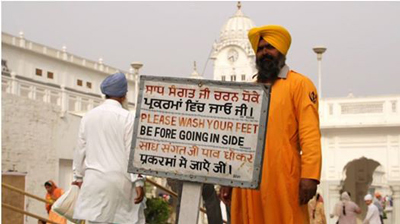 ਸਾਧ ਸੰਗਤ ਜੀ ਚਰਨ ਧੋਕੇ
ਪ੍ਰਕਰਮਾਂ ਵਿੱਚ ਜਾਓ ਜੀ।
PLEASE WASH YOUR FEET
BE FORE GOING IN SIDE
ਸਾਧ ਸੰਗਤ ਜੀ ਪਾਂਵ ਧੀਕਰ
ਪ੍ਰਕਰਮਾਂ ਸੇ ਜਾਏਂ ਜੀ।